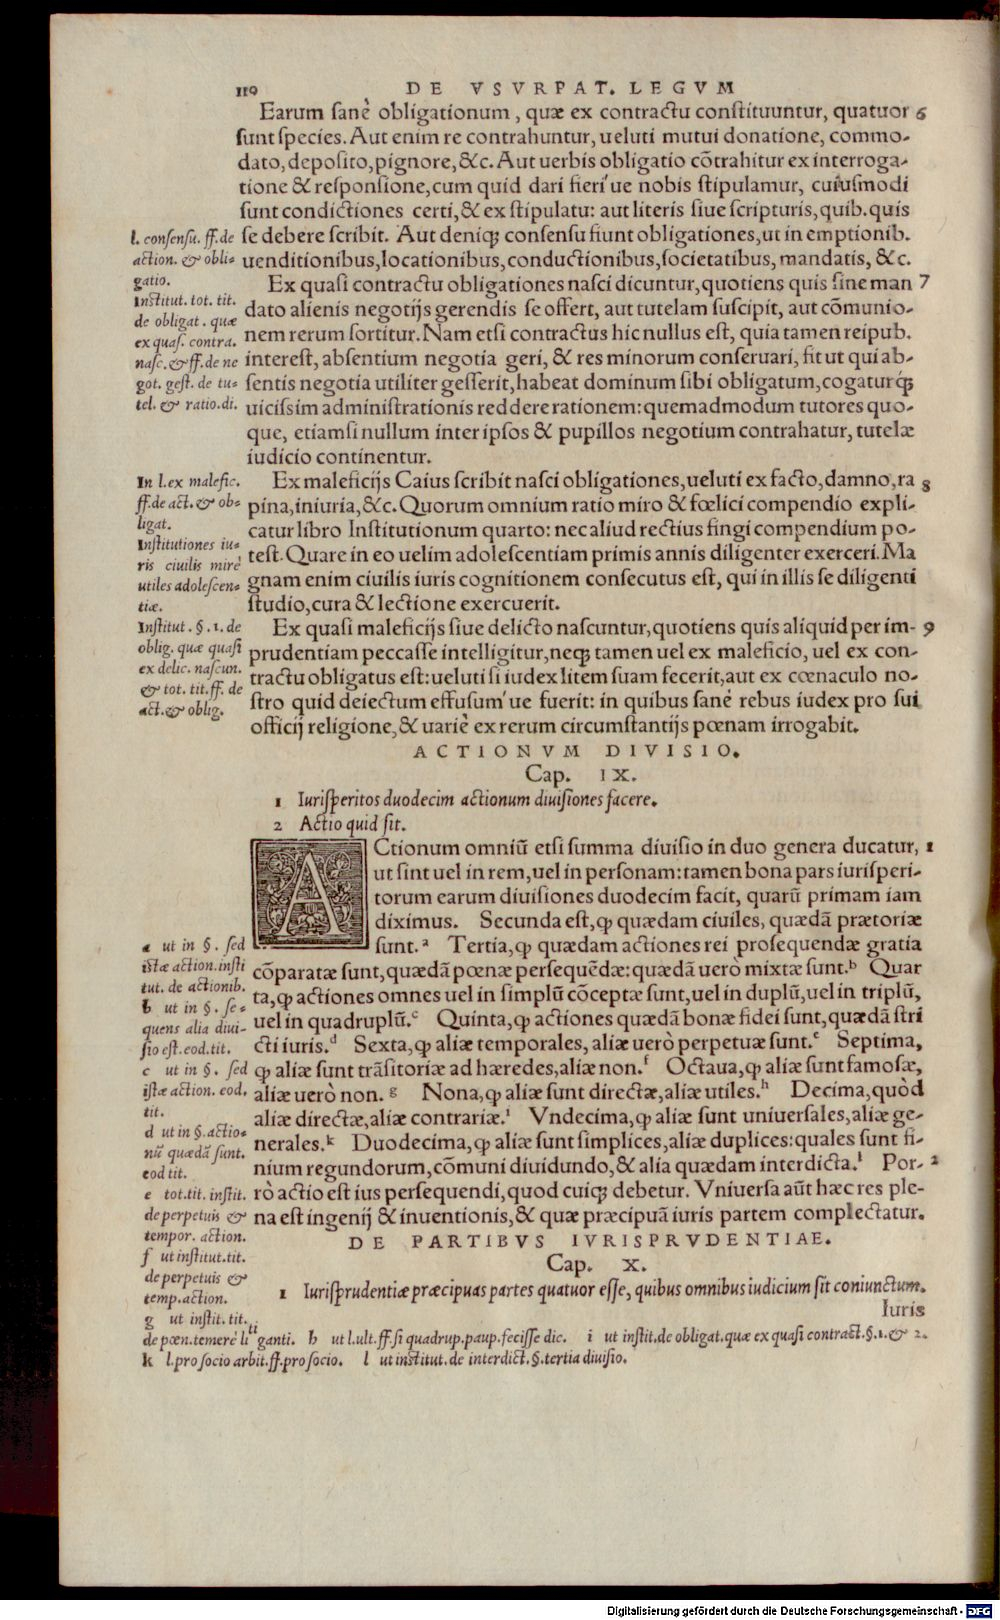 110 DE VSVRPAT. LEGVM
Earum sanè obligationum, quæ ex contractu constituuntur, quatuor 6
sunt species. Aut enim re contrahuntur, ueluti mutui donatione, commo-
dato, deposito, pignore, &c. Aut uerbis obligatio cõtrahitur ex interroga-
tione & responsione, cum quid dari fieri´ue nobis stipulamur, cuiusmodi
sunt condictiones certi, & ex stipulatu: aut literis siue scripturis, quib. quis
se debere scribit. Aut deniqʒ consensu fiunt obligationes, ut in emptionib.
uenditionibus, locationibus, conductionibus, societatibus, mandatis, &c.
Ex quasi contractu obligationes nasci dicuntur, quotiens quis sine man 7
dato alienis negotijs gerendis se offert, aut tutelam suscipit, aut cõmunio-
nem rerum sortitur. Nam etsi contractus hic nullus est, quia tamen reipub.
interest, absentium negotia geri, & res minorum conseruari, fit ut qui ab-
sentis negotia utiliter gesserit, habeat dominum sibi obligatum, cogaturq́ʒ
uicissim administrationis reddere rationem: quemadmodum tutores quo-
que, etiamsi nullum inter ipsos & pupillos negotium contrahatur, tutelæ
iudicio continentur.
Ex maleficijs Caius scribit nasci obligationes, ueluti ex facto, damno, ra 8
pina, iniuria, &c. Quorum omnium ratio miro & fœlici compendio expli-
catur libro Institutionum quarto: nec aliud rectius fingi compendium po-
test. Quare in eo uelim adolescentiam primis annis diligenter exerceri. Ma
gnam enim ciuilis iuris cognitionem consecutus est, qui in illis se diligenti
studio, cura & lectione exercuerit.
Ex quasi maleficijs siue delicto nascuntur, quotiens quis aliquid per im- 9
prudentiam peccasse intelligitur, neqʒ tamen uel ex maleficio, uel ex con-
tractu obligatus est: ueluti si iudex litem suam fecerit, aut ex cœnaculo no-
stro quid deiectum effusum´ue fuerit: in quibus sanè rebus iudex pro sui
officij religione, & uariè ex rerum circumstantijs pœnam irrogabit.
l. consensu. ff. de
action. & obli-
gatio.
Institut. tot. tit.
de obligat. quæ
ex quas. contra.
nasc. & ff. de ne
got. gest. de tu-
tel. & ratio. di.
In l. ex malefic.
ff. de act. & ob-
ligat.
Institutiones iu-
ris ciuilis mirè
utiles adolescen-
tiæ.
Institut. §. 1. de
oblig. quæ quasi
ex delic. nascun.
& tot. tit. ff. de
act. & oblig.
ACTIONVM DIVISIO.
Cap. IX.
1 Iurisperitos duodecim actionum diuisiones facere.
2 Actio quid sit.
ACtionum omniũ etsi summa diuisio in duo genera ducatur, 1
ut sint uel in rem, uel in personam: tamen bona pars iurisperi-
torum earum diuisiones duodecim facit, quarũ primam iam
diximus. Secunda est, ꝙ quædam ciuiles, quædã prætoriæ
sunt.ᵃ Tertia, ꝙ quædam actiones rei prosequendæ gratia
cõparatæ sunt, quædã pœnæ persequẽdæ: quædã uerò mixtæ sunt.ᵇ Quar
ta, ꝙ actiones omnes uel in simplũ cõceptæ sunt, uel in duplũ, uel in triplũ,
uel in quadruplũ.ᶜ Quinta, ꝙ actiones quædã bonæ fidei sunt, quædã stri
cti iuris.ᵈ Sexta, ꝙ aliæ temporales, aliæ uerò perpetuæ sunt.ᵉ Septima,
ꝙ aliæ sunt trãsitoriæ ad hæredes, aliæ non.ᶠ Octaua, ꝙ aliæ sunt famosæ,
aliæ uerò non.ᵍ Nona, ꝙ aliæ sunt directæ, aliæ utiles.ʰ Decima, quòd
aliæ directæ, aliæ contrariæ.ⁱ Vndecima, ꝙ aliæ sunt uniuersales, aliæ ge-
nerales.ᵏ Duodecima, ꝙ aliæ sunt simplices, aliæ duplices: quales sunt fi-
nium regundorum, cõmuni diuidundo, & alia quædam interdicta.ˡ Por- 2
rò actio est ius persequendi, quod cuiqʒ debetur. Vniuersa aũt hæc res ple-
na est ingenij & inuentionis, & quæ præcipuã iuris partem complectatur.
a ut in §. sed
istæ action. insti
tut. de actionib.
b ut in §. se-
quens alia diui-
sio est. eod. tit.
c ut in §. sed
istæ action. eod.
tit.
d ut in §. actio-
nũ quædã sunt.
eod tit.
e tot. tit. instit.
de perpetuis &
tempor. action.
f ut institut. tit.
de perpetuis &
temp. action.
g ut instit. tit.
DE PARTIBVS IVRISPRVDENTIAE.
Cap. X.
1 Iurisprudentiæ præcipuas partes quatuor esse, quibus omnibus iudicium sit coniunctum.
Iuris
de pœn. temerè litiganti. h ut l. ult. ff. si quadrup. paup. fecisse dic. i ut instit. de obligat. quæ ex quasi contract. §. 1. & 2.
k l. pro socio arbit. ff. pro socio. l ut institut. de interdict. §. tertia diuisio.
Digitalisierung gefördert durch die Deutsche Forschungsgemeinschaft - DFG